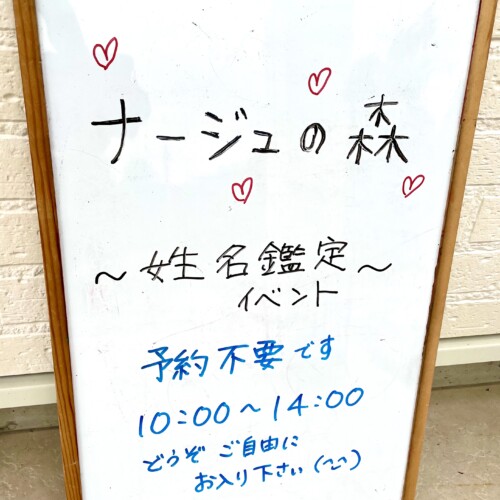 ナージュの森
～姓名鑑定～
イベント
予約不要です
10:00～14:00
どうぞ ご自由に
お入り下さい(^^)